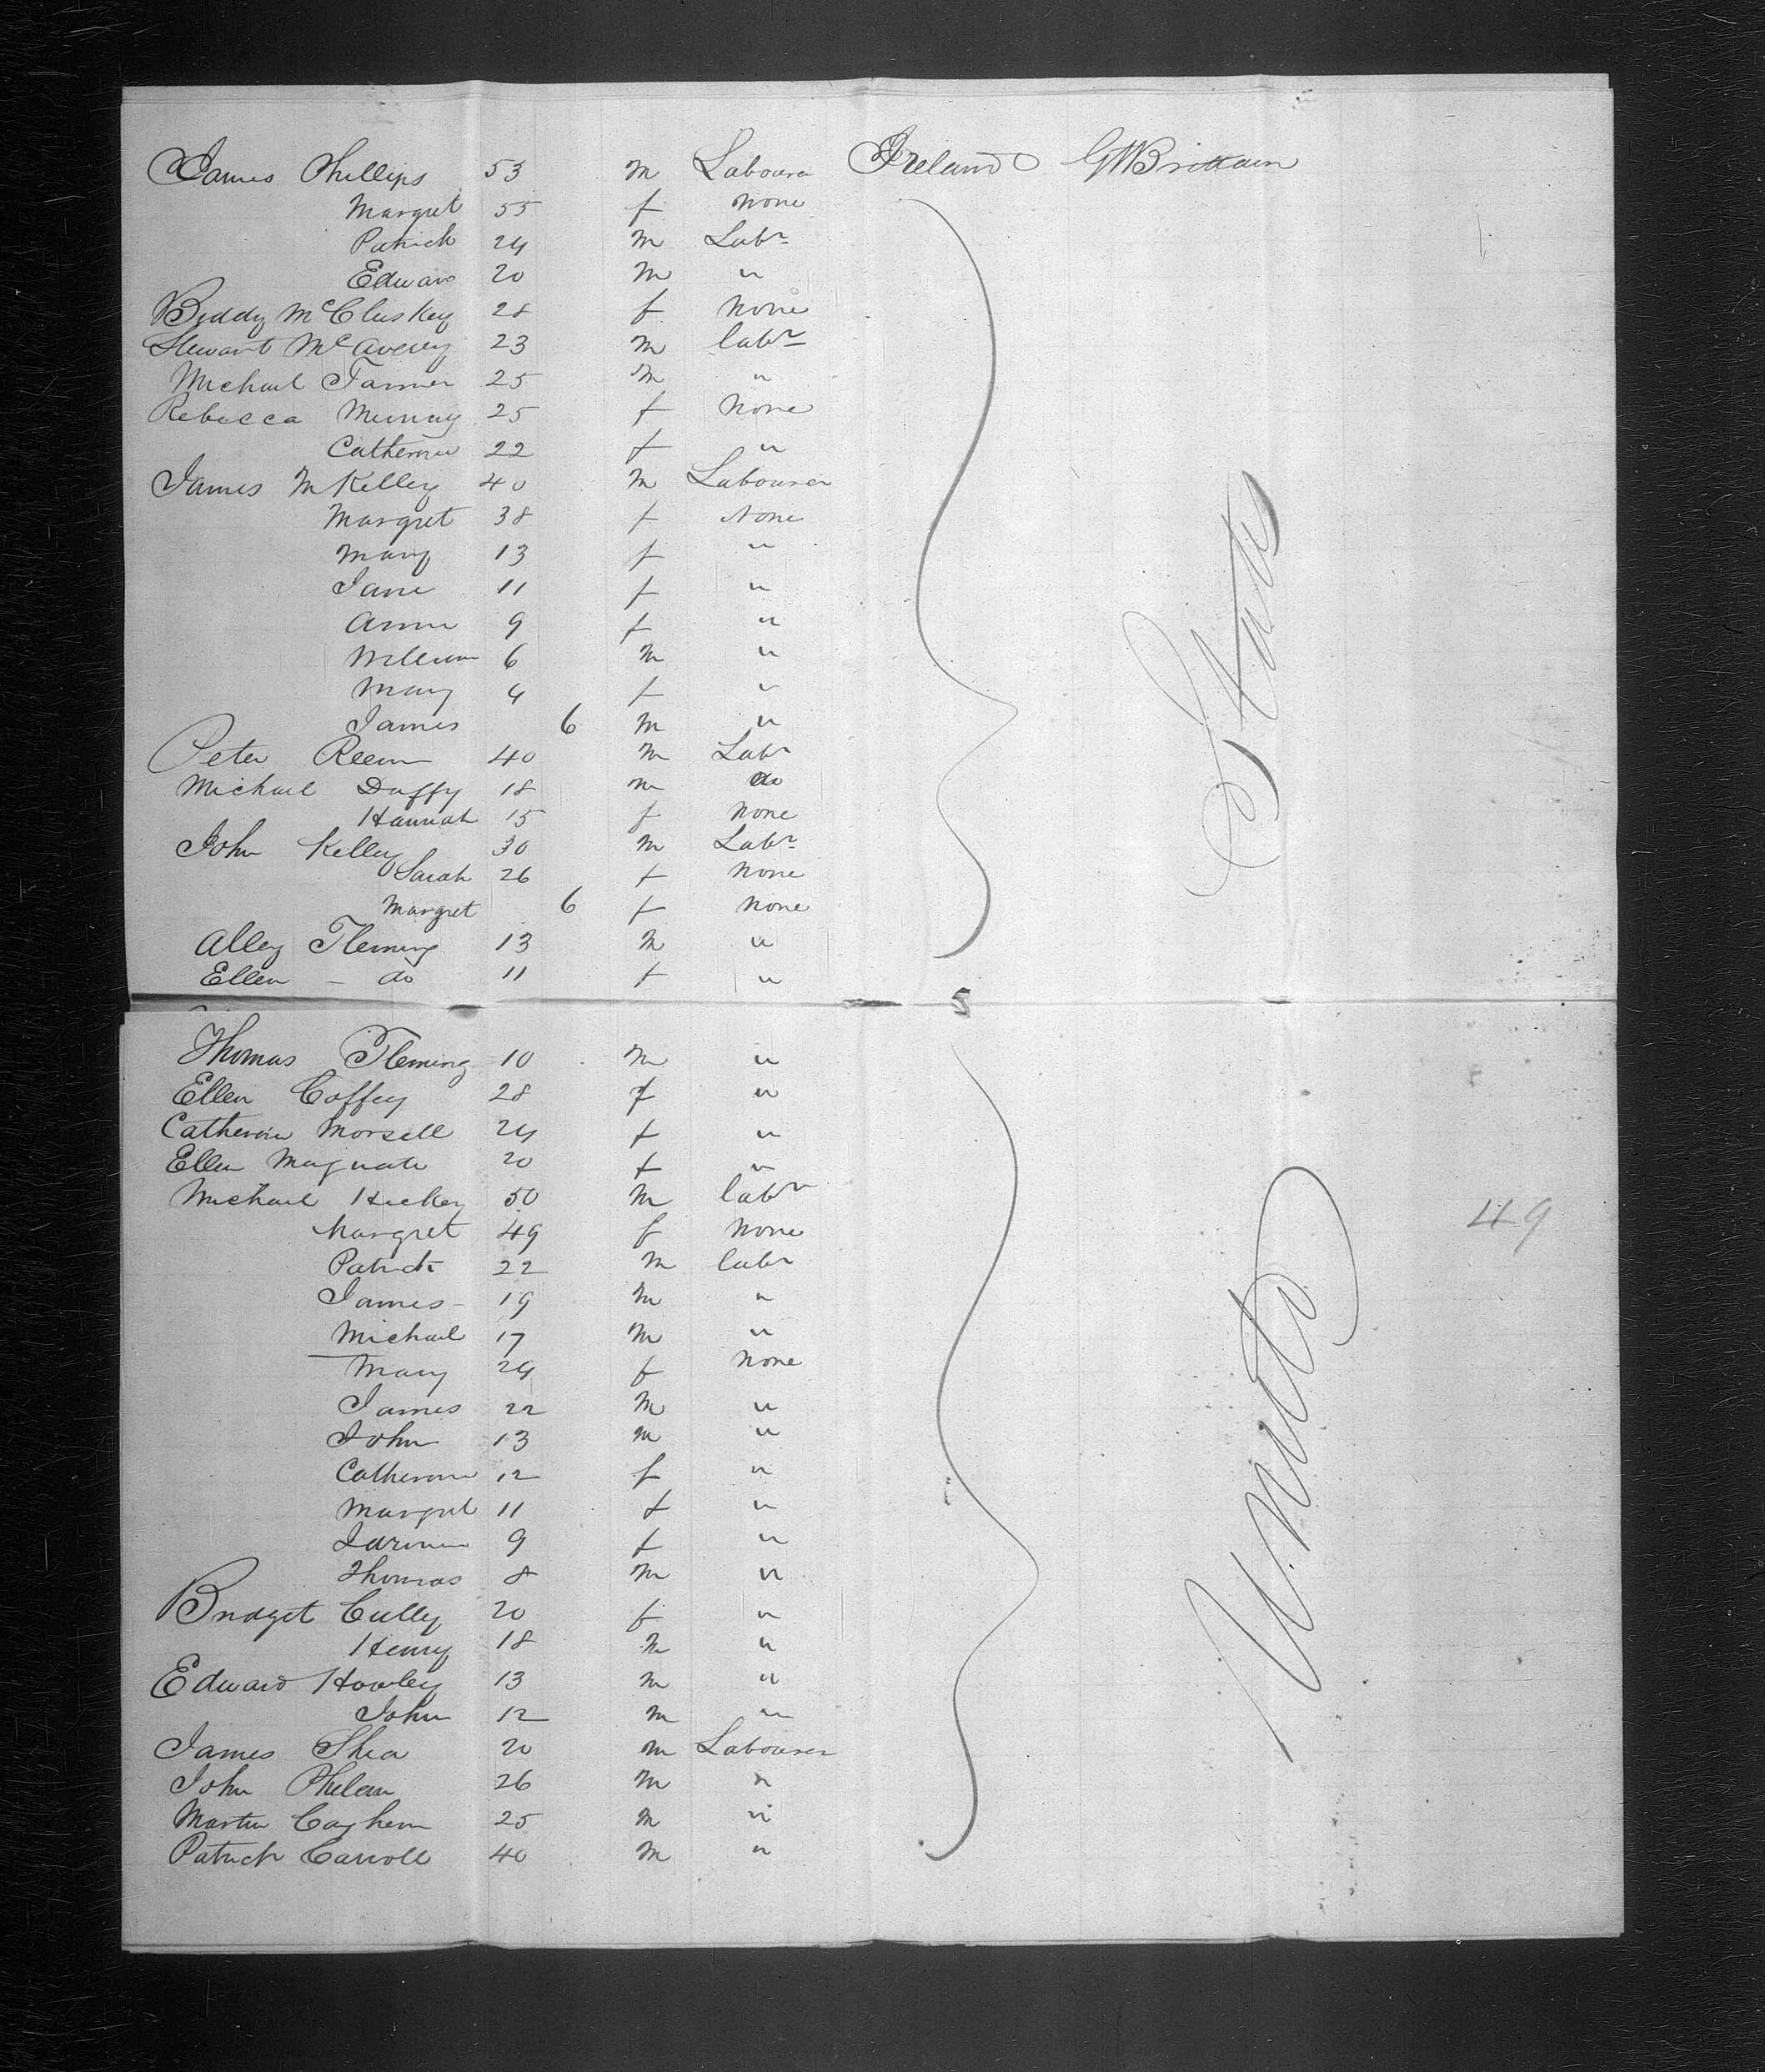 James Phillips 53 m Labourer Ireland Gt Brittain
Margret 55 f None
Patrick 24 m Labr
Edward 20 m "
Biddy McCluskey 28 f None
Stewart McAverey 23 m labr
Michael Tanner 25 m "
Rebecca Murray 25 f None
Catherine 22 f "
James McKelley 40 m Labourer
Margret 38 f None
Mary 13 f "
Jane 11 f "
Anne 9 f "
William 6 m "
Mary 4 f "
James 6 m "
Peter 40 m Labr
Michael Duffy 18 m do
Hannah 15 f None
John Kelley 30 m Labr
Sarah 26 f None
Margret 6 f None
Alley Fleming 13 m "
Ellen - do 11 f "
Thomas Fleming 10 m "
Ellen Coffey 28 f "
Catherine Morsell 24 f "
Ellen 20 f "
Michael Hickey 50 m labr
Margret 49 f None
Patrick 22 m labr
James 19 m "
Michael 17 m "
Mary 24 f None
James 22 m "
John 13 m "
Catherine 12 f "
Margret 11 f "
9 f "
Thomas 8 m "
Bridget Cully 20 f "
Henry 18 m "
Edward Howley 13 m "
John 12 m "
James Shea 20 m Labourer
John Phelan 26 m "
Martin 25 m "
Patrick Carroll 40 m "
United States
49